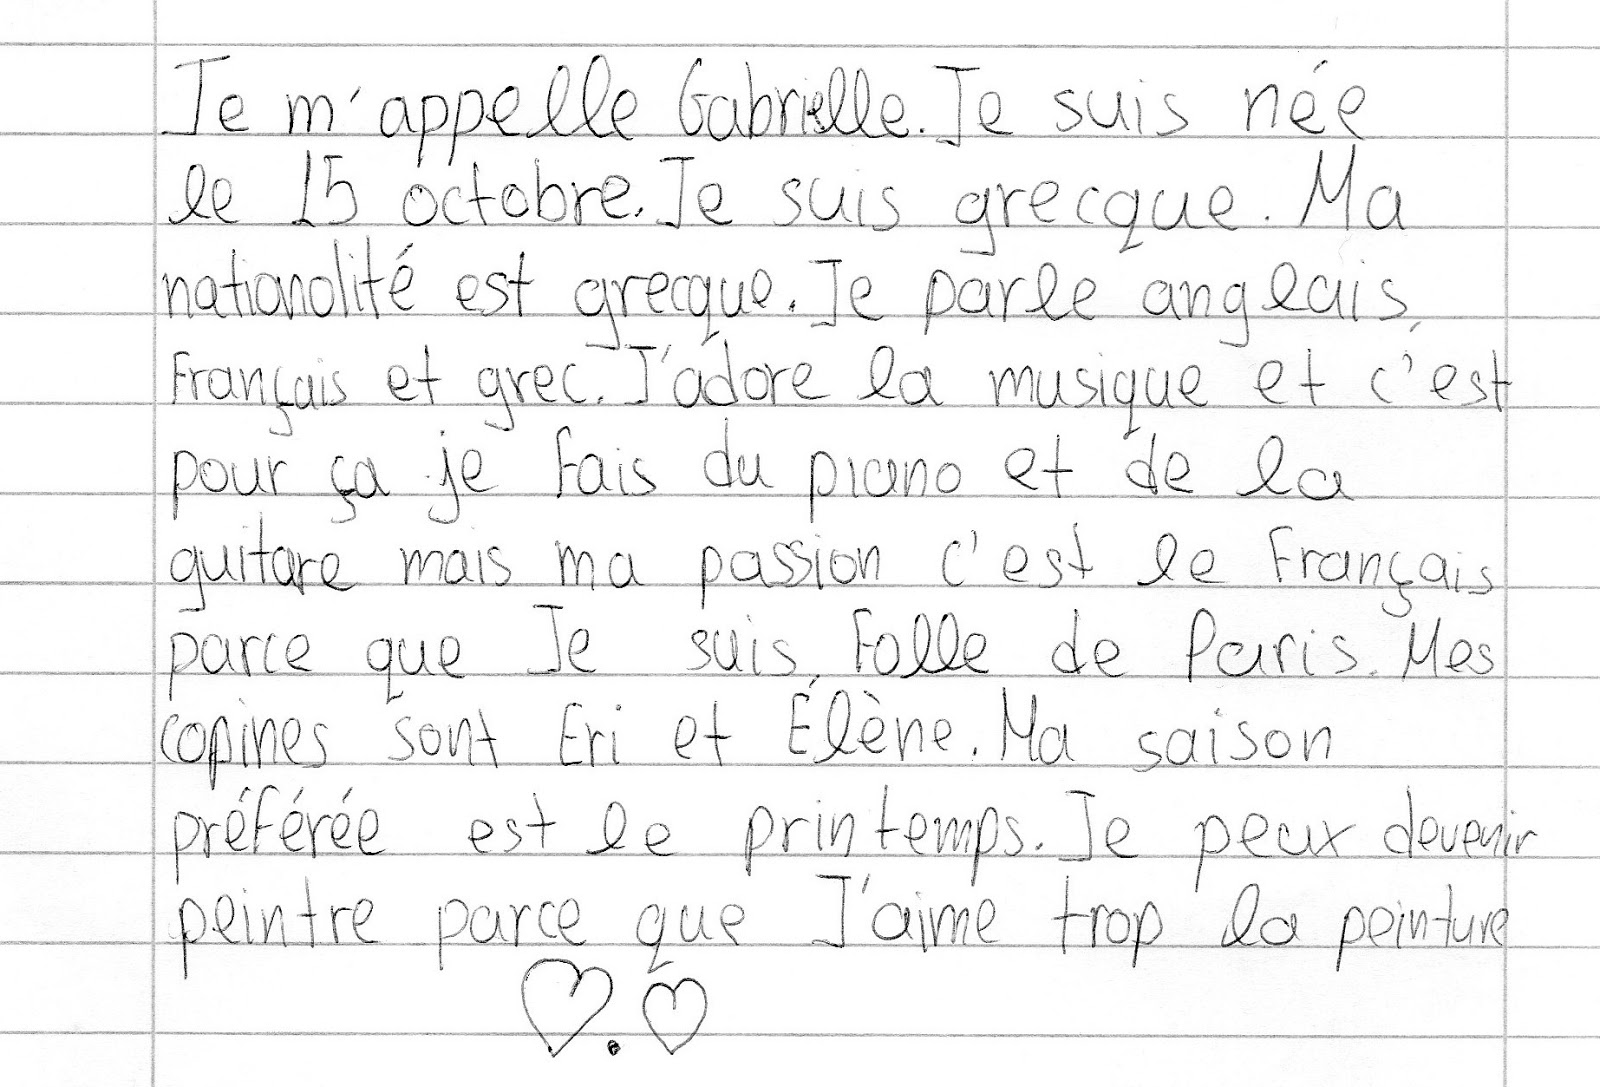 Je m'appelle Gabrielle. Je suis née
le 15 octobre. Je suis grecque. Ma
nationalité est grecque. Je parle anglais,
Français et grec. J'adore la musique et c'est
pour ça je fais du piano et de la
guitare mais ma passion c'est le Français
parce que Je suis Folle de Paris. Mes
copines sont Eri et Élène. Ma saison
préférée est le printemps. Je peux devenir
peintre parce que J'aime trop la peinture